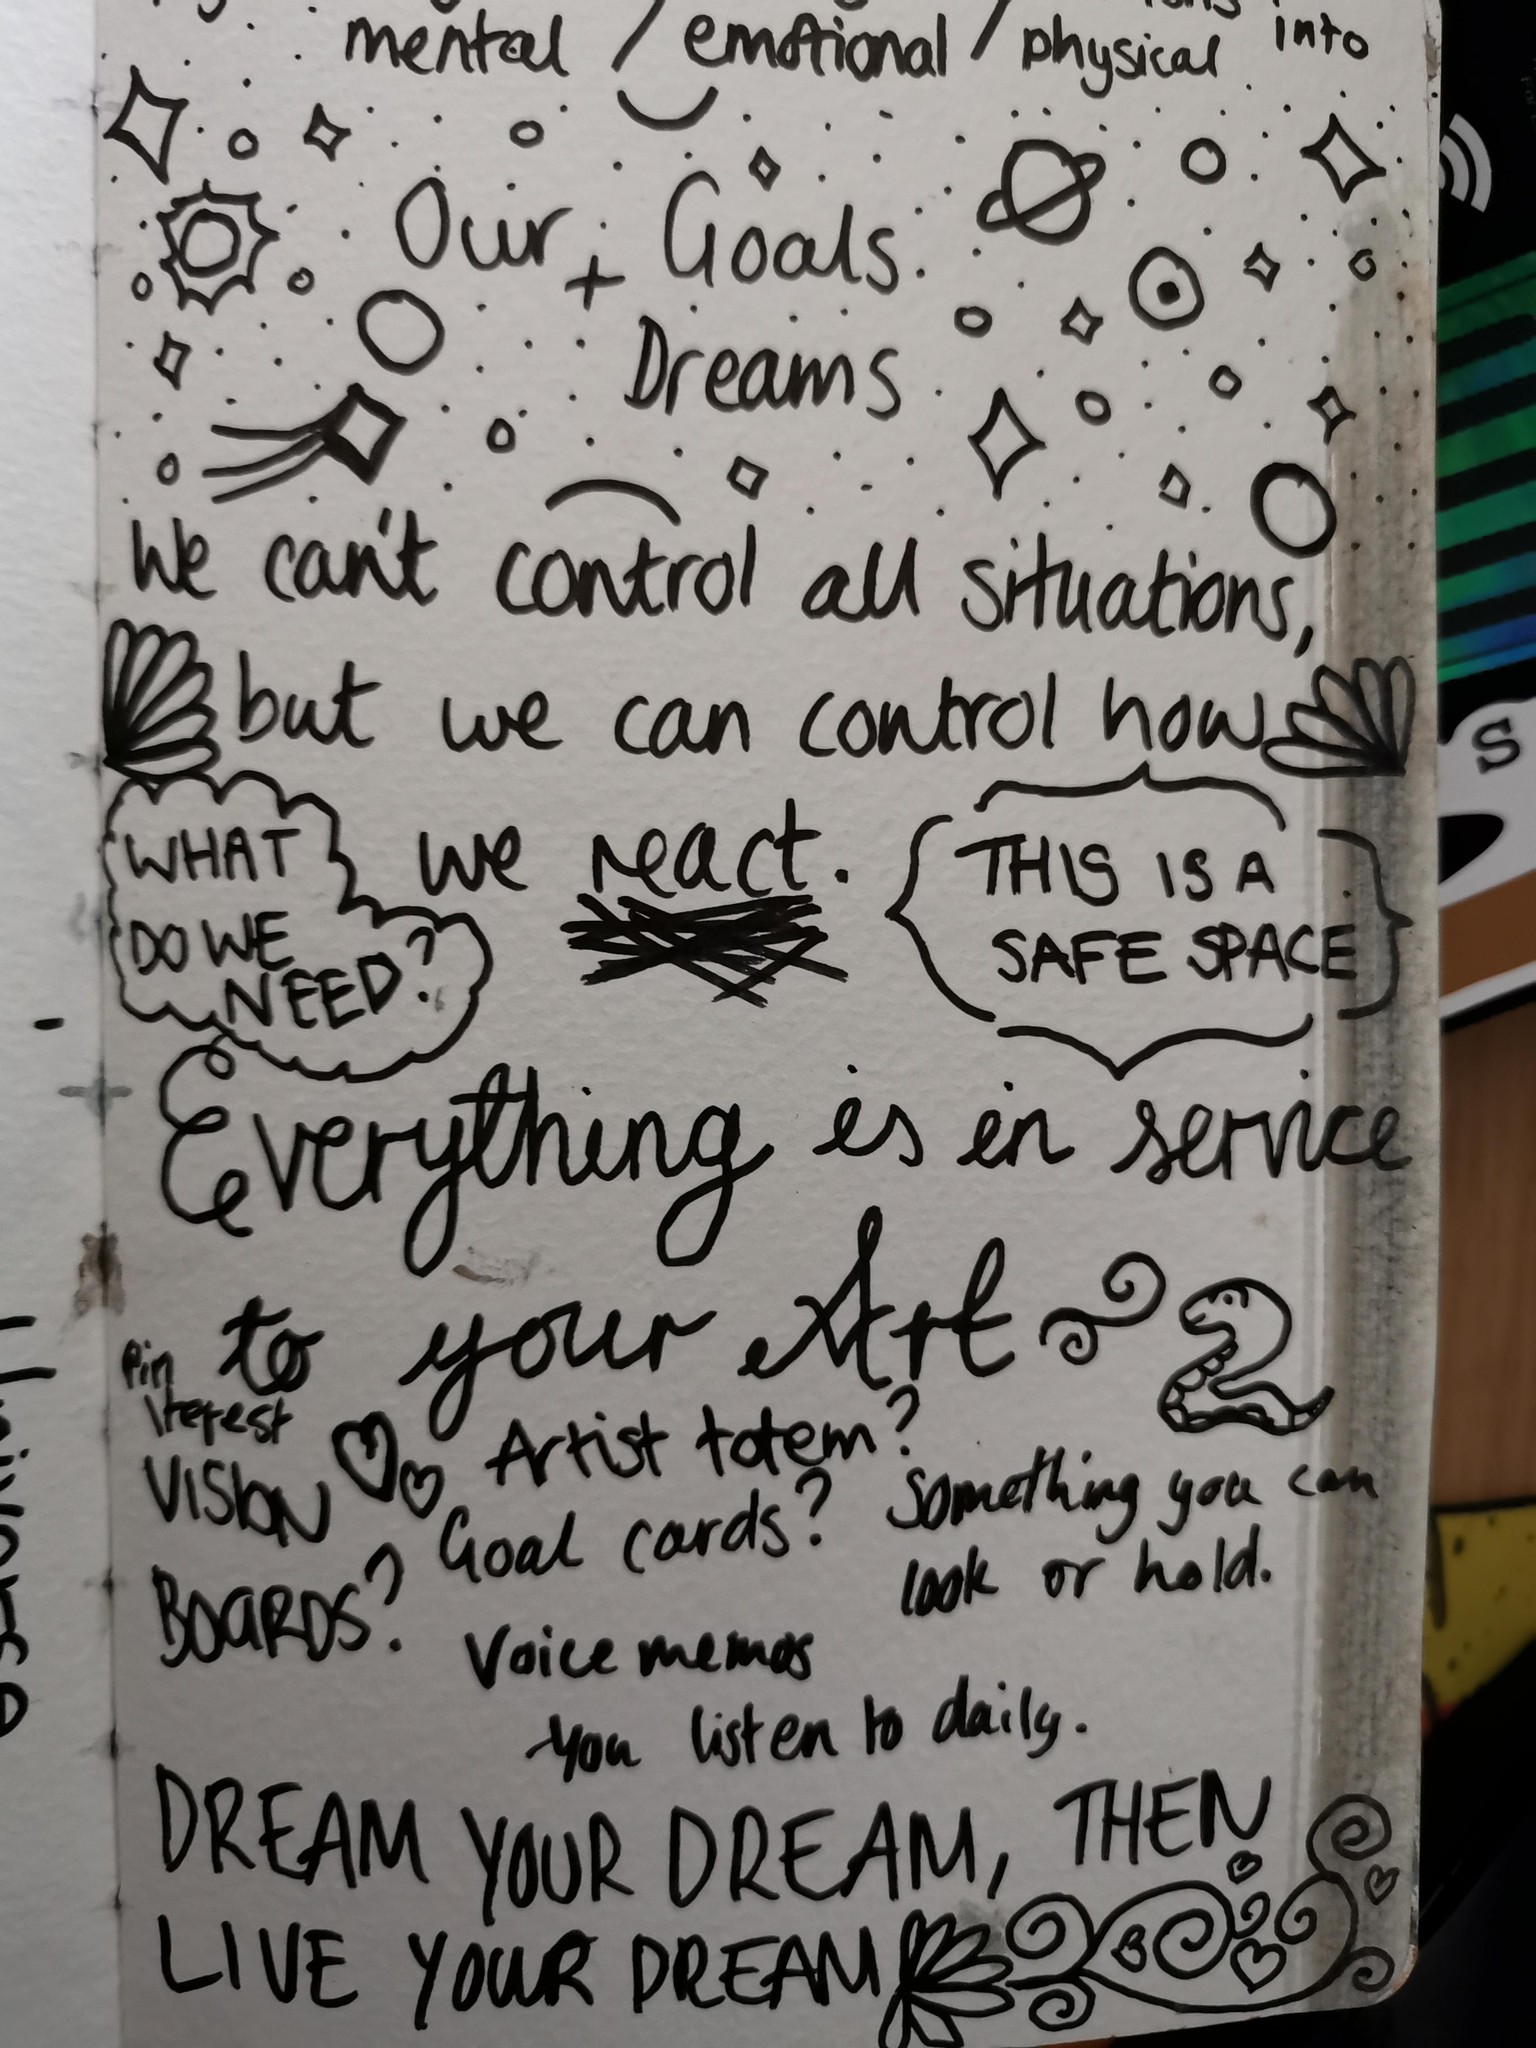 mental / emotional / physical into
Our + Goals
Dreams
We can't control all situations,
but we can control how
we react.
WHAT
DO WE
NEED?
THIS IS A
SAFE SPACE
Everything is in service
to your Art
Pin
terest
VISION
BOARDS?
Artist totem?
Goal cards?
Something you can
look or hold.
Voice memos
you listen to daily.
DREAM YOUR DREAM, THEN
LIVE YOUR DREAM
S